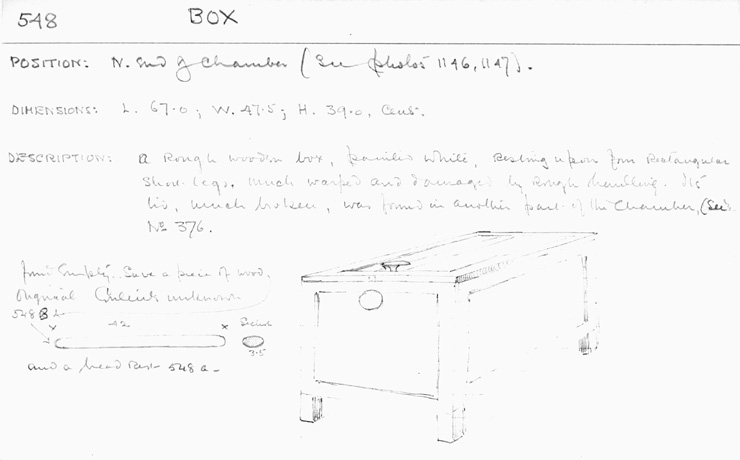 548 BOX
POSITION: N. End of Chamber (See photos 1146, 1147).
DIMENSIONS: L. 67.0; W. 47.5; H. 39.0, Cent.
DESCRIPTION: A Rough wooden box, painted white, Resting upon four Rectangular
Short legs. Much warped and damaged by Rough handling. Its
lid, much broken, was found in another part of the Chamber, (See
No 376.
found Empty. Save a piece of wood,
original Contents unknown
548 B
x 42 x Section
3.5
and a head Rest 548 a -